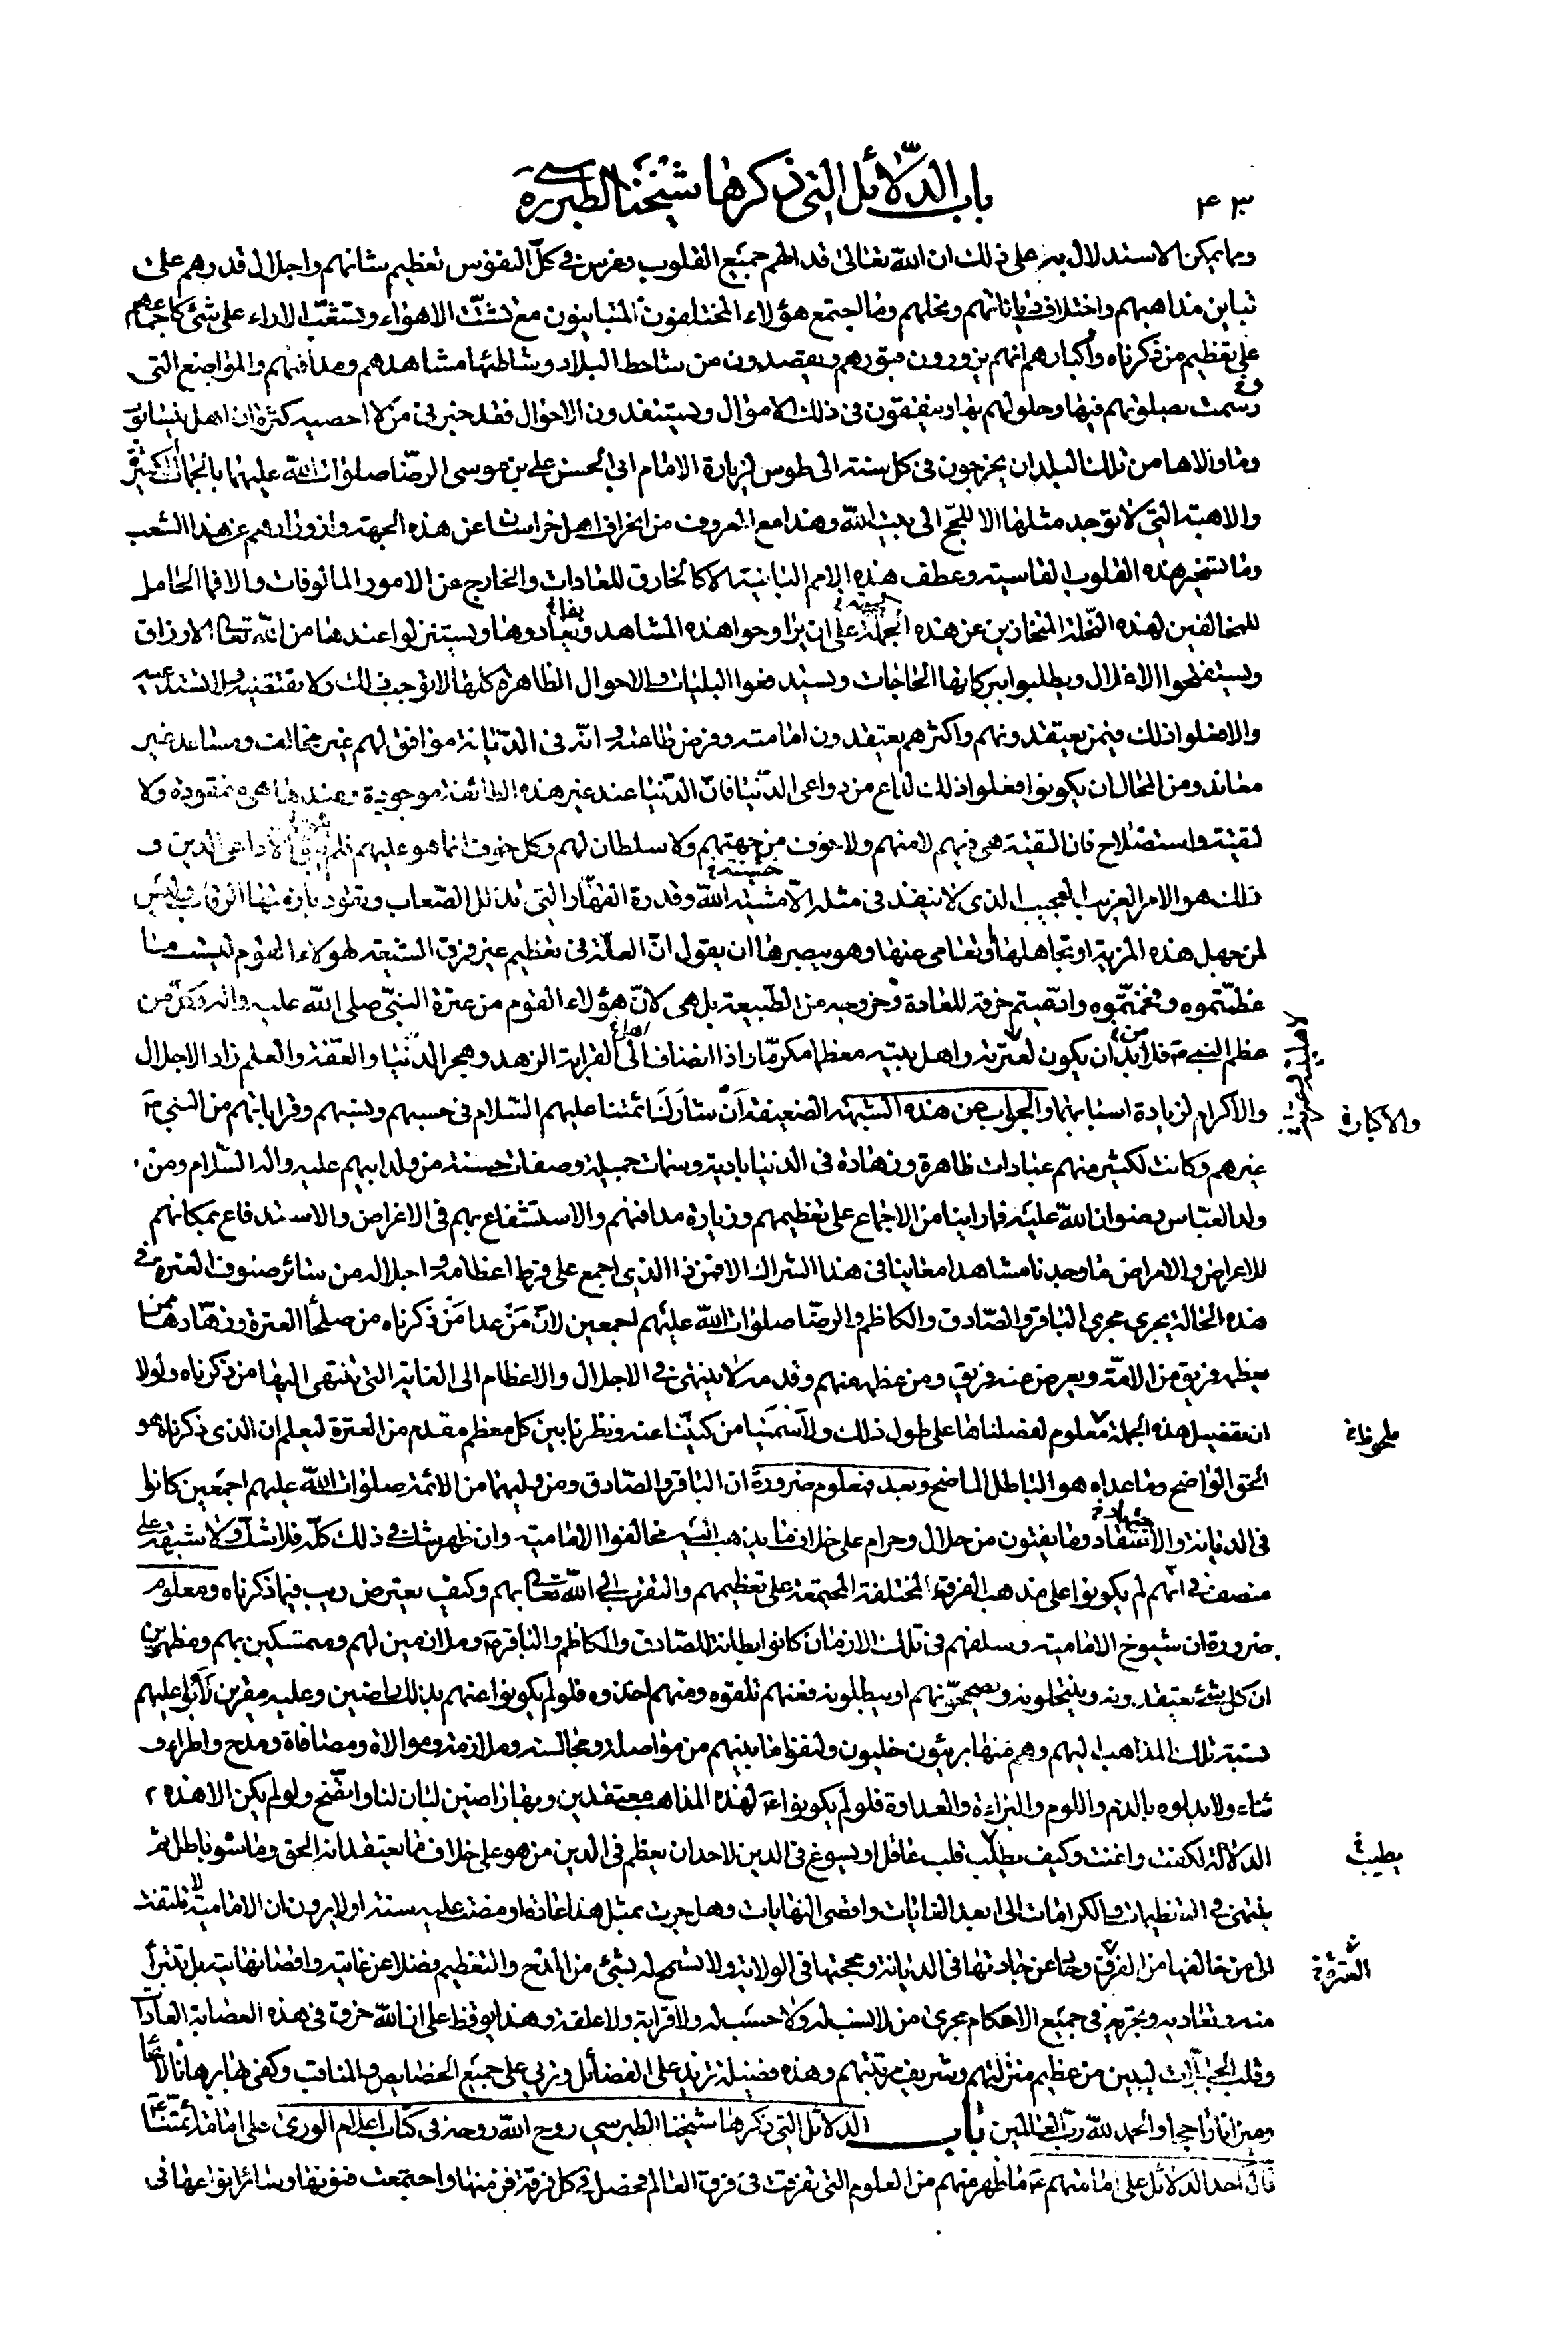 ٤٣ باب الدّلائل التى ذكرها شيخنا الطبرسى ره
ومما يمكن الاستدلال به على ذلك ان الله تعالى قد الهم جميع القلوب وغرس فى كلّ النفوس تعظيم شانهم واجلال قدرهم على
تباين مذاهبهم واختلاف دياناتهم ونحلهم وما اجتمع هؤلاء المختلفون المتباينون مع تشتت الاهواء وتشعّب الاراء على شئ كاجماعهم
على تعظيم من ذكرناه وأكبارهم انهم يزورون قبورهم ويقصدون من شاحط البلاد وشاطئها مشاهدهم ومدافنهم والمواضع التى
رسمت بصلوتهم فيها وحلولهم بها وينفقون فى ذلك الاموال ويستنفدون الاحوال فقد خبرنى من لا احصيه كثرة ان اهل نيسابور
وما والاها من تلك البلدان يخرجون فى كل سنة الى طوس لزيارة الامام ابى الحسن على بن موسى الرضا صلوات الله عليهما بالجمال الكثيرة
والاهبة التى لا توجد مثلها الا للحجّ الى بيت الله وهذا مع المعروف من انحراف اهل خراسان عن هذه الجهة وازورارهم عن هذا الشعب
وما تسخير هذه القلوب القاسية وعطف هذه الامم النابية الا كالخارق للعادات والخارج عن الامور المالوفات والا فما الحامل
للمخالفين لهذه النحلة المنحازين عن هذه الجملة على ان يراوحوا هذه المشاهد ويغادوها ويستنزلوا عندها من الله تعالى الارزاق
ويستفتحوا الاغلال ويطلبوا ببركاتها الحاجات ويستدفعوا البليات والاحوال الظاهرة كلها لا توجب ذلك ولا تقتضيه ولا تستدعيه
والا فعلوا ذلك فيمن يعتقدونهم واكثرهم يعتقدون امامته وفرض طاعته وانّه فى الدّيانة موافق لهم غير مخالف ومساعد غير
معاند ومن المحال ان يكونوا فعلوا ذلك لداع من دواعى الدّنيا فانّ الدّنيا عند غير هذه الطائفة موجودة وعندها هى مفقودة ولا
لتقيّة واستصلاح فان التقيّة هى فيهم لا منهم ولا خوف من جهتهم ولا سلطان لهم وكل خوف انما هو عليهم فلم يبق الا داعى الدين و
ذلك هو الامر الغريب العجيب الذى لا ينفذ فى مثله الّا مشيّة الله وقدرة القهّار التى تذلل الصّعاب وتقود بازمّتها الرقاب وليس
لمن جهل هذه المزية او تجاهلها وتعامى عنها وهو يبصرها ان يقول انّ العلّة فى تعظيم غير فرق الشيعة لهؤلاء القوم ليست ما
عظّمتموه وفخّمتموه وادّعيتم خرقه للعادة وخروجه من الطّبيعة بل هى لانّ هؤلاء القوم من عترة النبىّ صلى الله عليه واله وكلّ من
عظم النبى ص فلا بدّ من ان يكون لعترته واهل بيته معظما مكرمّا واذا انضاف الى القرابة الزهد وهجر الدّنيا والعفّة والعلم زاد الاجلال
والاكرام لزيادة اسبابهما والجواب عن هذه الشبهة الضعيفة انّ شارك ائمتنا عليهم السّلام فى حسبهم ونسبهم وقراباتهم من النبى ص
غيرهم وكانت لكثير منهم عبادات ظاهرة وزهادة فى الدنيا بادية وسمات جميلة وصفات حسنة من ولد ابيهم عليه واله السّلام ومن
ولد العبّاس رضوان الله عليه فما راينا من الاجماع على تعظيمهم وزيارة مدافنهم والاستشفاع بهم فى الاغراض والاستدفاع بمكانهم
للاعراض والامراض ما وجدنا مشاهدا معاينا فى هذا الشراك الا فمن ذا الذى اجمع على فرط اعظامه واجلاله من سائر صنوف العترة فى
هذه الحالة يجرى مجرى الباقر والصّادق والكاظم والرضا صلوات الله عليهم اجمعين لانّ من عدا من ذكرناه من صلحاء العترة وزهّادها ممن
يعظمه فريق من الامّة ويعرض عنه فريق ومن عظمه منهم وقدمه لا ينتهى فى الاجلال والاعظام الى الغاية التى ينتهى اليها من ذكرناه ولولا
ان تفصيل هذه الجملة معلوم لفصلناها على طول ذلك ولاسمّينا من كنيّنا عنه ونظرنا بين كل معظم مقدم من العترة ليعلم ان الذى ذكرناه هو
الحق الواضح وما عداه هو الباطل الماضح وبعد فمعلوم ضرورة ان الباقر والصّادق ومن وليهما من الائمة صلوات الله عليهم اجمعين كانوا
فى الديانة والاعتقاد وما يفتون من حلال وحرام على خلاف ما يذهب اليه مخالفوا الامامية وان ظهر شك فى ذلك كلّه فلا شكّ ولا شبهة على
منصف فى انّهم لم يكونوا على مذهب الفرقة المختلفة المجتمعة على تعظيمهم والتقرب الى الله تعالى بهم وكيف يعترض ريب فيما ذكرناه ومعلوم
ضرورة ان شيوخ الامامية وسلفهم فى تلك الازمان كانوا بطانة للصّادق والكاظم والباقر ع وملازمين لهم ومتمسكين بهم ومظهرين
ان كل شئ يعتقدونه وينتحلونه ويصححّونه او يبطلونه فعنهم تلقوه ومنهم اخذوه فلو لم يكونوا عنهم بذلك راضين وعليه مقرين لابوا عليهم
نسبة تلك المذاهب اليهم وهم منها بريئون خليون ولنفوا ما بينهم من مواصلة ومجالسة وملازمة وموالاة ومصافاة ومدح واطراء و
ثناء ولابدلوه بالذم واللوم والبراءة والعداوة فلو لم يكونوا ع لهذه المذاهب معتقدين وبها راضين لبان لنا واتضّح ولو لم يكن الا هذه
الدلالة لكفت واغنت وكيف يطيب قلب عاقل او يسوغ فى الدين لاحد ان يعظم فى الدين من هو على خلاف ما يعتقد انه الحق وما سواه باطل ثم
ينتهى فى التعظيمات والكرامات الى ابعد الغايات واقصى النهايات وهل جرت بمثل هذا عادة او مضت عليه سنة اولا يرون ان الامامية لا تلتفت
الى من خالفها من العترة وحاد عن جادتها فى الديانة ومحجتها فى الولاية ولا تسمح له بشئ من المدح والتعظيم فضلا عن غايته واقصى نهايته بل تتبرأ
منه وتعاديه وتجريه فى جميع الاحكام مجرى من لا نسب له ولا حسب له ولا قرابة ولا علقة وهذا يوقظ على ان الله خرق فى هذه العصابة العادات
وقلب الجبلّات ليبين من عظيم منزلتهم وشريف مرتبتهم وهذه فضيلة تزيد على الفضائل وتربى على جميع الخصايص والمناقب وكفى بها برهانا لائحا
وميزانا راجحا والحمد لله ربّ العالمين باب الدلائل التى ذكرها شيخنا الطبرسى روح الله روحه فى كتاب اعلام الورى على امامة أئمّتنا ع
قال احد الدلائل على امامتهم ع ما ظهر منهم من العلوم التى تفرقت فى فرق العالم فحصل فى كل فرقة فن منها واجتمعت فنونها وسائر انواعها فى
والاكبار خ
يطيب خ
العترة خ